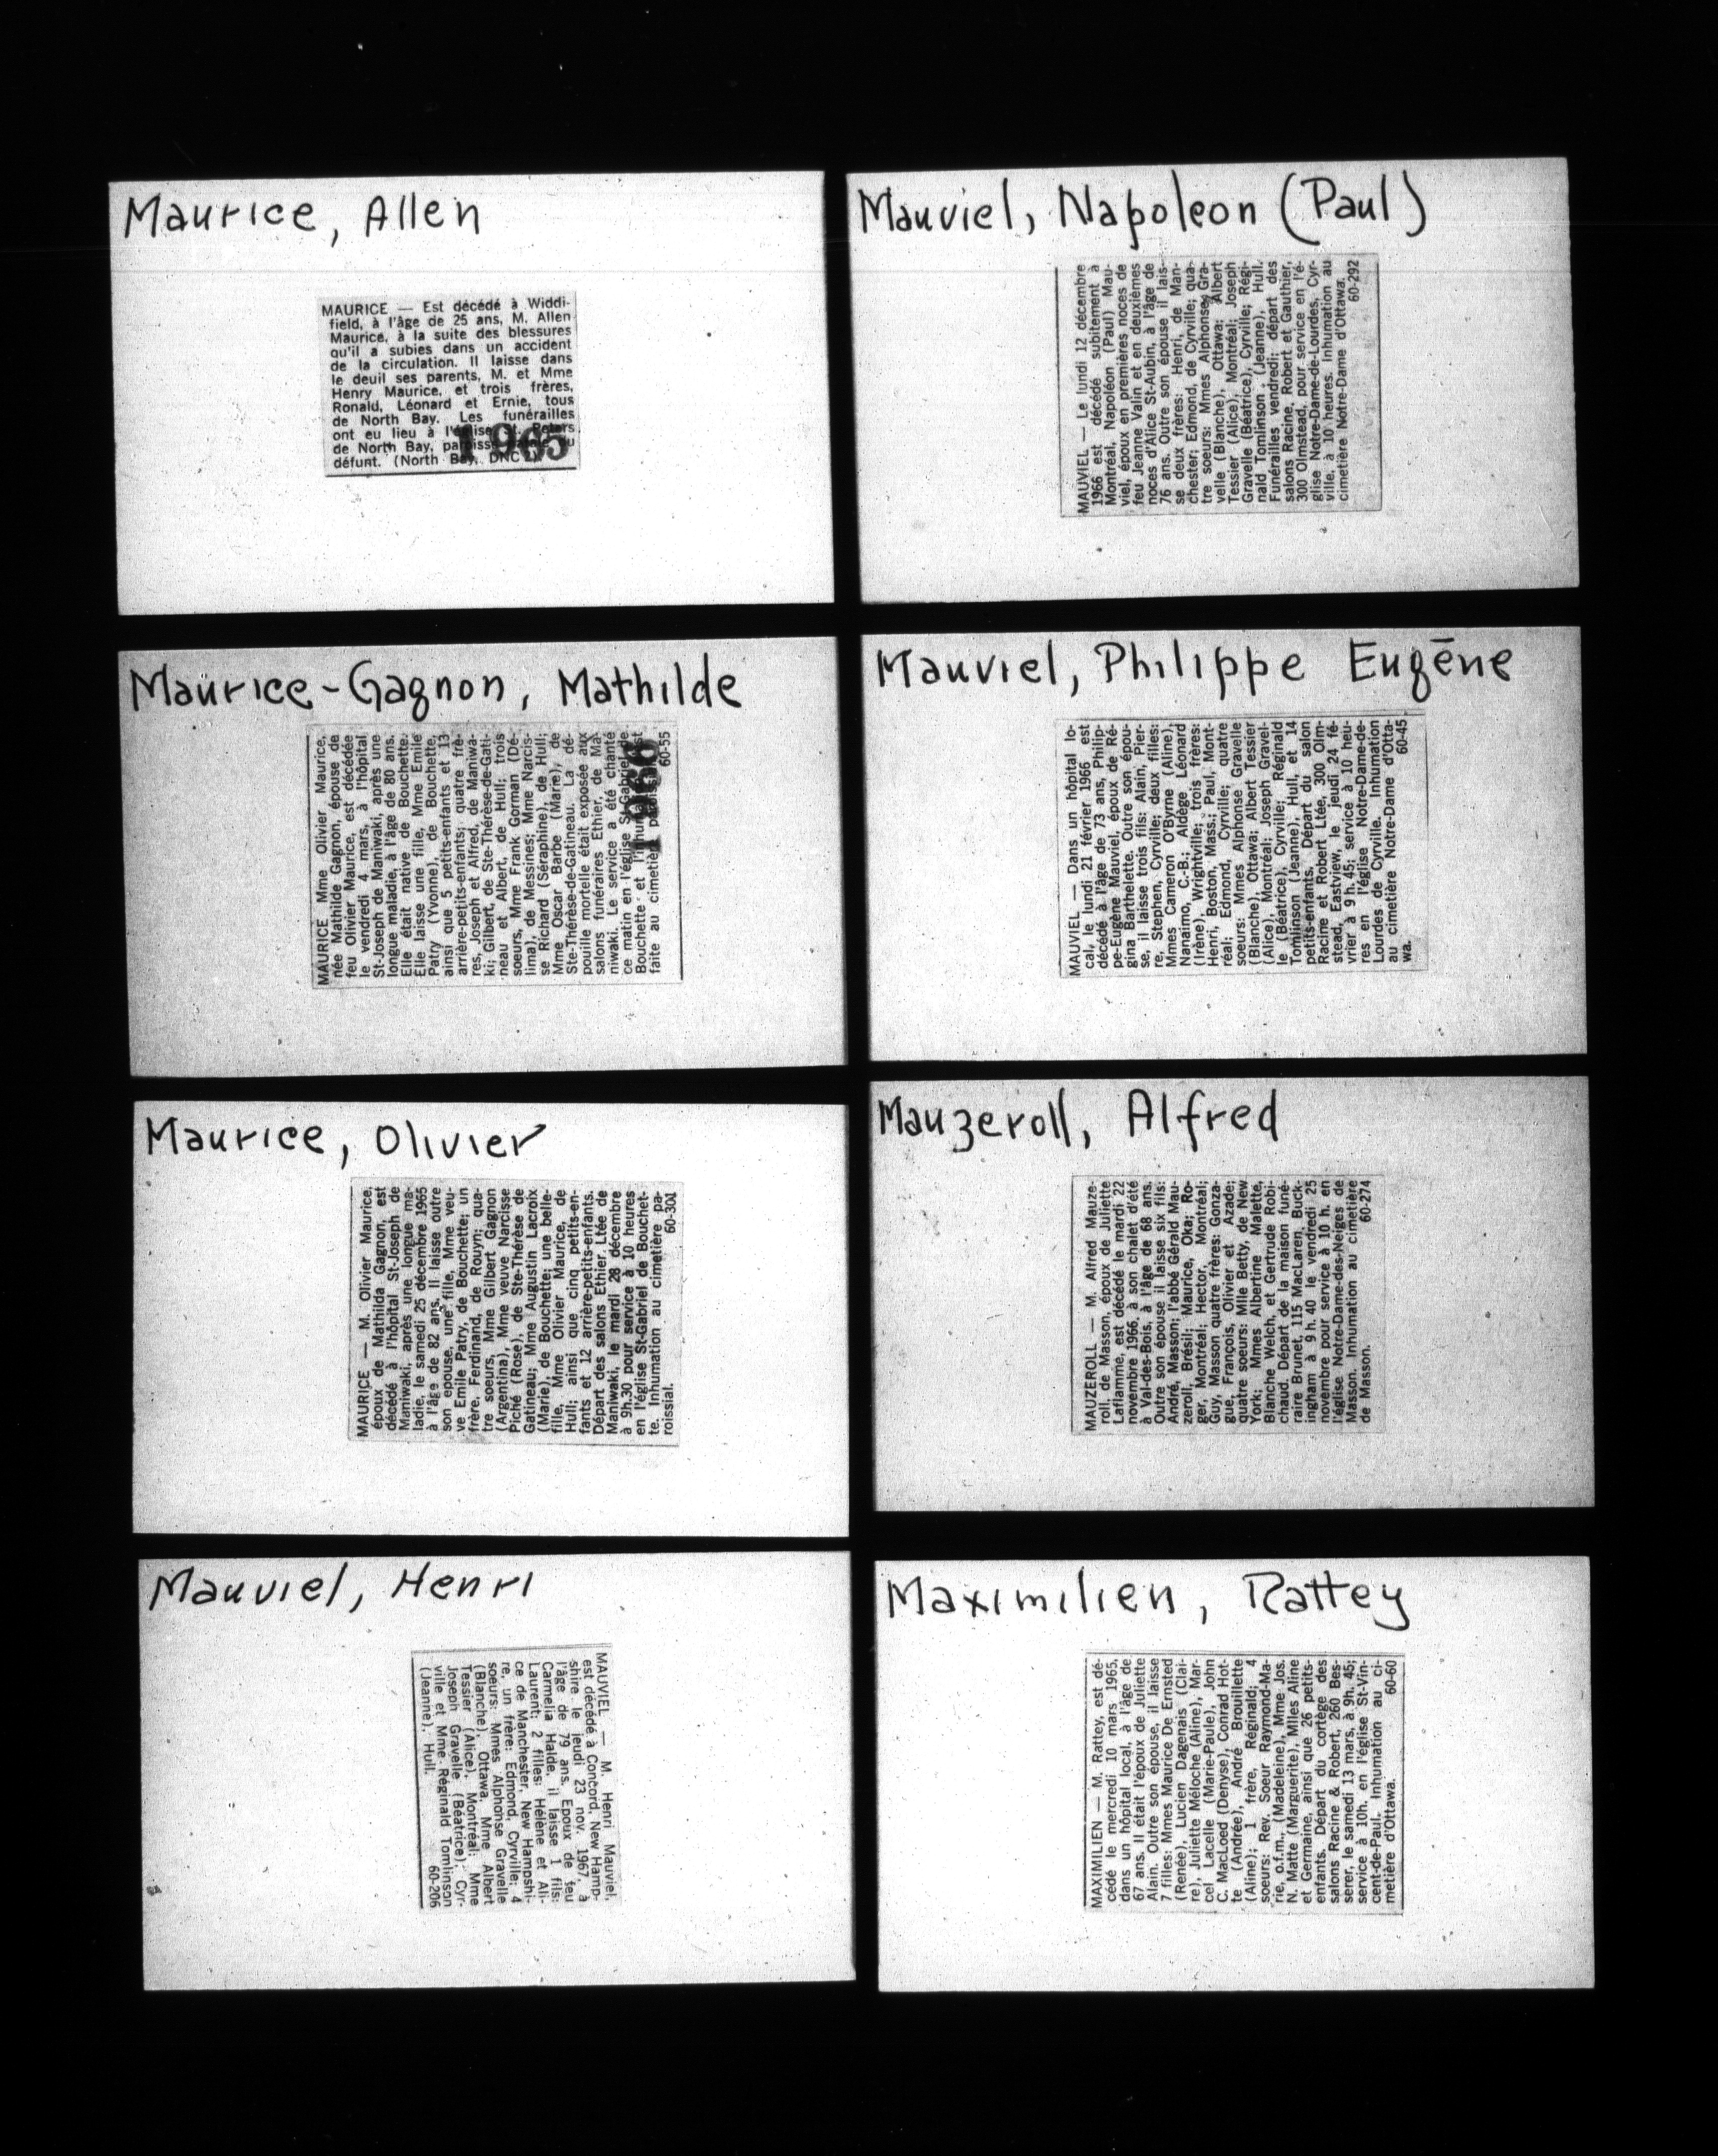 Maurice, Allen
MAURICE — Est décédé à Widdi-
field, à l'âge de 25 ans, M. Allen
Maurice, à la suite des blessures
qu'il a subies dans un accident
de la circulation. Il laisse dans
le deuil ses parents, M. et Mme
Henry Maurice, et trois frères,
Ronald, Léonard et Ernie, tous
de North Bay. Les funérailles
ont eu lieu à l'église St. Peters
de North Bay, paroisse du
défunt. (North Bay, DNC
1965
Maurice-Gagnon, Mathilde
MAURICE Mme Olivier Maurice,
née Mathilde Gagnon, épouse de
feu Olivier Maurice, est décédée
le vendredi 4 mars, à l'hôpital
St-Joseph de Maniwaki, après une
longue maladie, à l'âge de 80 ans.
Elle était native de Bouchette.
Elle laisse une fille, Mme Emile
Patry (Yvonne), de Bouchette,
ainsi que 5 petits-enfants et 13
arrière-petits-enfants; quatre frè-
res, Joseph et Alfred, de Maniwa-
ki; Gilbert, de Ste-Thérèse-de-Gati-
neau et Albert, de Hull; trois
soeurs, Mme Frank Gorman (Dé-
lima), de Messines; Mme Narcis-
se Richard (Séraphine), de Hull;
Mme Oscar Barbe (Marie), de
Ste-Thérèse-de-Gatineau. La dé-
pouille mortelle était exposée aux
salons funéraires Ethier, de Ma-
niwaki. Le service a été chanté
ce matin en l'église St-Gabriel de
Bouchette et l'inhumation est
faite au cimetière paroissial.
60-55
1966
Maurice, Olivier
MAURICE — M. Olivier Maurice,
époux de Mathilda Gagnon, est
décédé à l'hôpital St-Joseph de
Maniwaki, après une longue ma-
ladie, le samedi 25 décembre 1965
à l'âge de 82 ans. Il laisse outre
son épouse, une fille, Mme veu-
ve Emile Patry, de Bouchette; un
frère, Ferdinand, de Rouyn; qua-
tre soeurs, Mme Gilbert Gagnon
(Argentina), Mme veuve Narcisse
Piché (Rose), de Ste-Thérèse de
Gatineau; Mme Augustin Lacroix
(Marie), de Bouchette; une belle-
fille, Mme Olivier Maurice, de
Hull; ainsi que cinq petits-en-
fants et 12 arrière-petits-enfants.
Départ des salons Ethier Ltée de
Maniwaki, le mardi 28 décembre
à 9h.30 pour service à 10 heures
en l'église St-Gabriel de Bouchet-
te. Inhumation au cimetière pa-
roissial. 60-301
Mauviel, Henri
MAUVIEL — M. Henri Mauviel,
est décédé à Concord, New Hamp-
shire le jeudi 23 nov. 1967, à
l'âge de 79 ans. Epoux de feu
Carmelia Halde, il laisse 1 fils:
Laurent; 2 filles: Hélène et Ali-
ce de Manchester, New Hampshi-
re, un frère: Edmond, Cyrville; 4
soeurs: Mmes Alphonse Gravelle
(Blanche), Ottawa, Mme Albert
Tessier (Alice), Montréal; Mme
Joseph Gravelle (Béatrice), Cyr-
ville et Mme Réginald Tomlinson
(Jeanne), Hull. 60-206
Mauviel, Napoleon (Paul)
MAUVIEL — Le lundi 12 décembre
1966 est décédé subitement à
Montréal, Napoléon (Paul) Mau-
viel, époux en premières noces de
feu Jeanne Valin et en deuxièmes
noces d'Alice St-Aubin, à l'âge de
76 ans. Outre son épouse il lais-
se deux frères: Henri, de Man-
chester; Edmond, de Cyrville; qua-
tre soeurs: Mmes Alphonse Gra-
velle (Blanche), Ottawa; Albert
Tessier (Alice), Montréal; Joseph
Gravelle (Béatrice), Cyrville; Régi-
nald Tomlinson, (Jeanne), Hull.
Funérailles vendredi; départ des
salons Racine, Robert et Gauthier,
300 Olmstead, pour service en l'é-
glise Notre-Dame-de-Lourdes, Cyr-
ville, à 10 heures. Inhumation au
cimetière Notre-Dame d'Ottawa.
60-292
Mauviel, Philippe Eugēne
MAUVIEL — Dans un hôpital lo-
cal, le lundi 21 février 1966 est
décédé à l'âge de 73 ans, Philip-
pe-Eugène Mauviel, époux de Ré-
gina Barthelette. Outre son épou-
se, il laisse trois fils: Alain, Pier-
re, Stephen, Cyrville; deux filles:
Mmes Cameron O'Byrne (Aline),
Nanaimo, C.-B.; Aldège Léonard
(Irène), Wrightville; trois frères:
Henri, Boston, Mass.; Paul, Mont-
réal; Edmond, Cyrville; quatre
soeurs: Mmes Alphonse Gravelle
(Blanche), Ottawa; Albert Tessier
(Alice), Montréal; Joseph Gravel-
le (Béatrice), Cyrville; Réginald
Tomlinson (Jeanne), Hull, et 14
petits-enfants. Départ du salon
Racine et Robert Ltée, 300 Olm-
stead, Eastview, le jeudi 24 fé-
vrier à 9 h. 45; service à 10 heu-
res en l'église Notre-Dame-de-
Lourdes de Cyrville. Inhumation
au cimetière Notre-Dame d'Otta-
wa. 60-45
Mauzeroll, Alfred
MAUZEROLL — M. Alfred Mauze-
roll, de Masson, époux de Juliette
Laflamme, est décédé le mardi 22
novembre 1966, à son chalet d'été
à Val-des-Bois, à l'âge de 68 ans.
Outre son épouse il laisse six fils:
André, Masson; l'abbé Gérald Mau-
zeroll, Brésil; Maurice, Oka; Ro-
ger, Montréal; Hector, Montréal;
Guy, Masson quatre frères: Gonza-
gue, François, Olivier et Azade;
quatre soeurs: Mlle Betty, de New
York; Mmes Albertine Malette,
Blanche Welch, et Gertrude Robi-
chaud. Départ de la maison funé-
raire Brunet, 115 MacLaren, Buck-
ingham à 9 h. 40 le vendredi 25
novembre pour service à 10 h. en
l'église Notre-Dame-des-Neiges de
Masson. Inhumation au cimetière
de Masson. 60-274
Maximilien, Rattey
MAXIMILIEN — M. Rattey, est dé-
cédé le mercredi 10 mars 1965,
dans un hôpital local, à l'âge de
67 ans. Il était l'époux de Juliette
Alain. Outre son épouse, il laisse
7 filles: Mmes Maurice De Ernsted
(Renée), Lucien Dagenais (Clai-
re), Juliette Méloche (Aline), Mar-
cel Lacelle (Marie-Paule), John
C. MacLoed (Denyse), Conrad Hot-
te (Andrée), André Brouillette
(Aline); 1 frère, Réginald; 4
soeurs: Rev. Soeur Raymond-Ma-
rie, o.f.m., (Madeleine), Mme Jos.
N. Matte (Marguerite), Mlles Aline
et Germaine, ainsi que 26 petits-
enfants. Départ du cortège des
salons Racine & Robert, 260 Bes-
serer, le samedi 13 mars, à 9h. 45;
service à 10h. en l'église St-Vin-
cent-de-Paul. Inhumation au ci-
metière d'Ottawa. 60-60